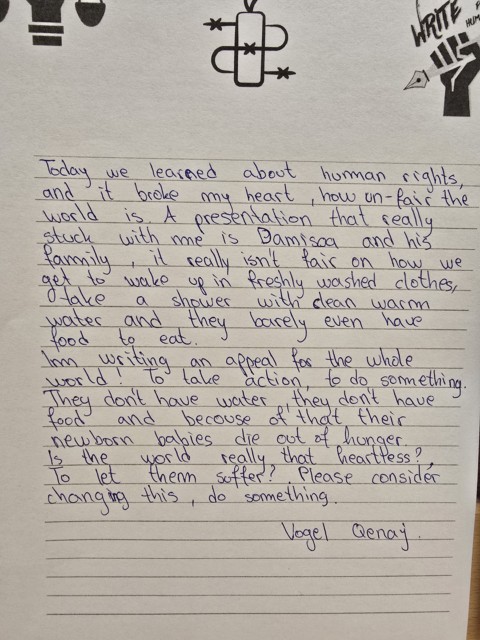 WRITE
Today we learned about human rights,
and it broke my heart , how un-fair the
world is. A presentation that really
stuck with me is Damisoa and his
fammily , it really isn't fair on how we
get to wake up in freshly washed clothes,
take a shower with clean warm
water and they barely even have
food to eat.
Imn writing an appeal for the whole
world! To take action, to do something.
They don't have water, they don't have
food and becouse of that their
newborn babies die out of hunger.
Is the world really that heartless?,
To let them suffer? Please consider
changing this , do something.
Vogel Qenaj.